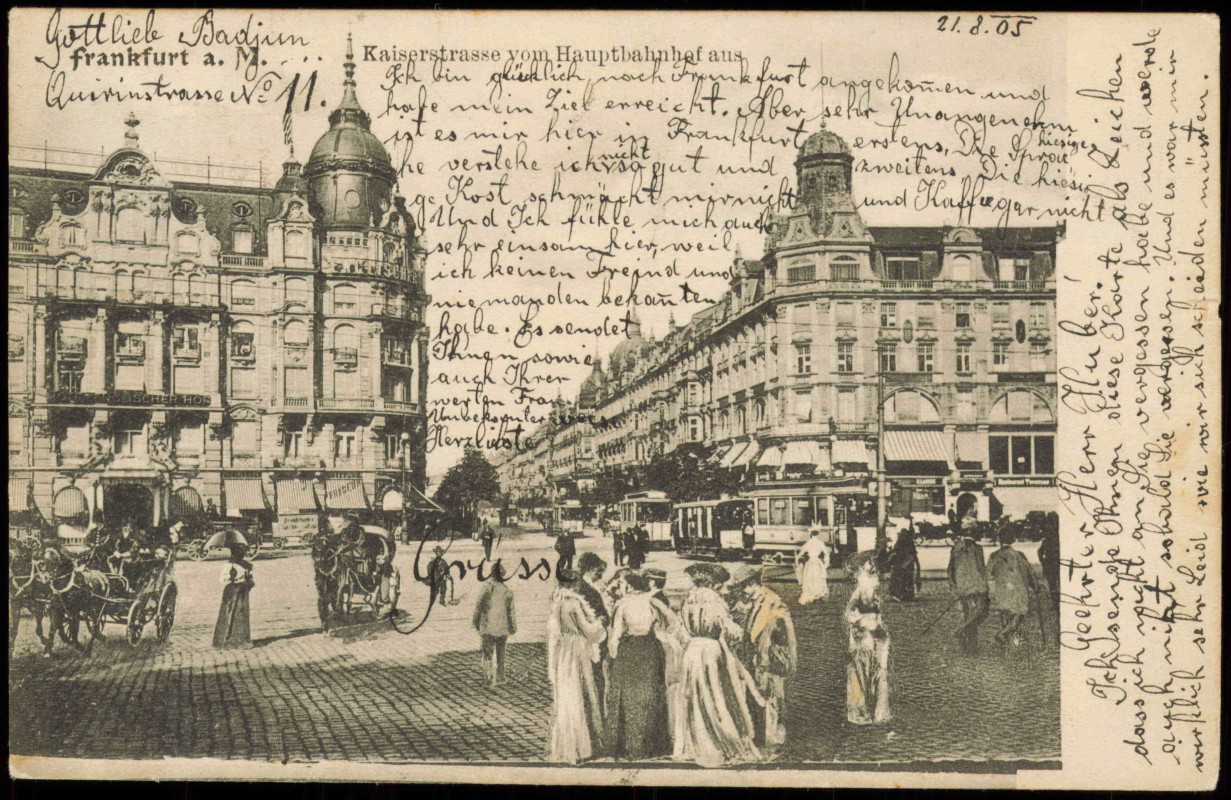 Gottlieb Badjun
Frankfurt a. M.
Quirinstrasse No 11.
Kaiserstrasse vom Hauptbahnhof aus
21.8.05
Ich bin glücklich nach Frankfurt angekom̄en und
habe mein Ziel erreicht. Aber sehr Unangenehm
ist es mir hier in Frankfurt erstens, Die hiesige Spra
che verstehe ich nicht so gut und zweitens Die hiesi
ge Kost schmäckt mir nicht und Kaffe gar nicht
Und Ich fühle mich auch
sehr einsam hier, weil
ich keinen Freind und
niemanden bekan̄ten
habe. Es sendet
Ihnen sowie
auch Ihrer
werten Frau
Herzlichste
Grüsse
Geehrter Herr Huber!
Ich sende Ihnen diese Karte als Zeichen
dass ich nicht an Sie vergessen habe und werde
auch nicht sobald Sie vergessen. Und es war mir
wirklich sehr Leid wie wir sich scheiden musten.